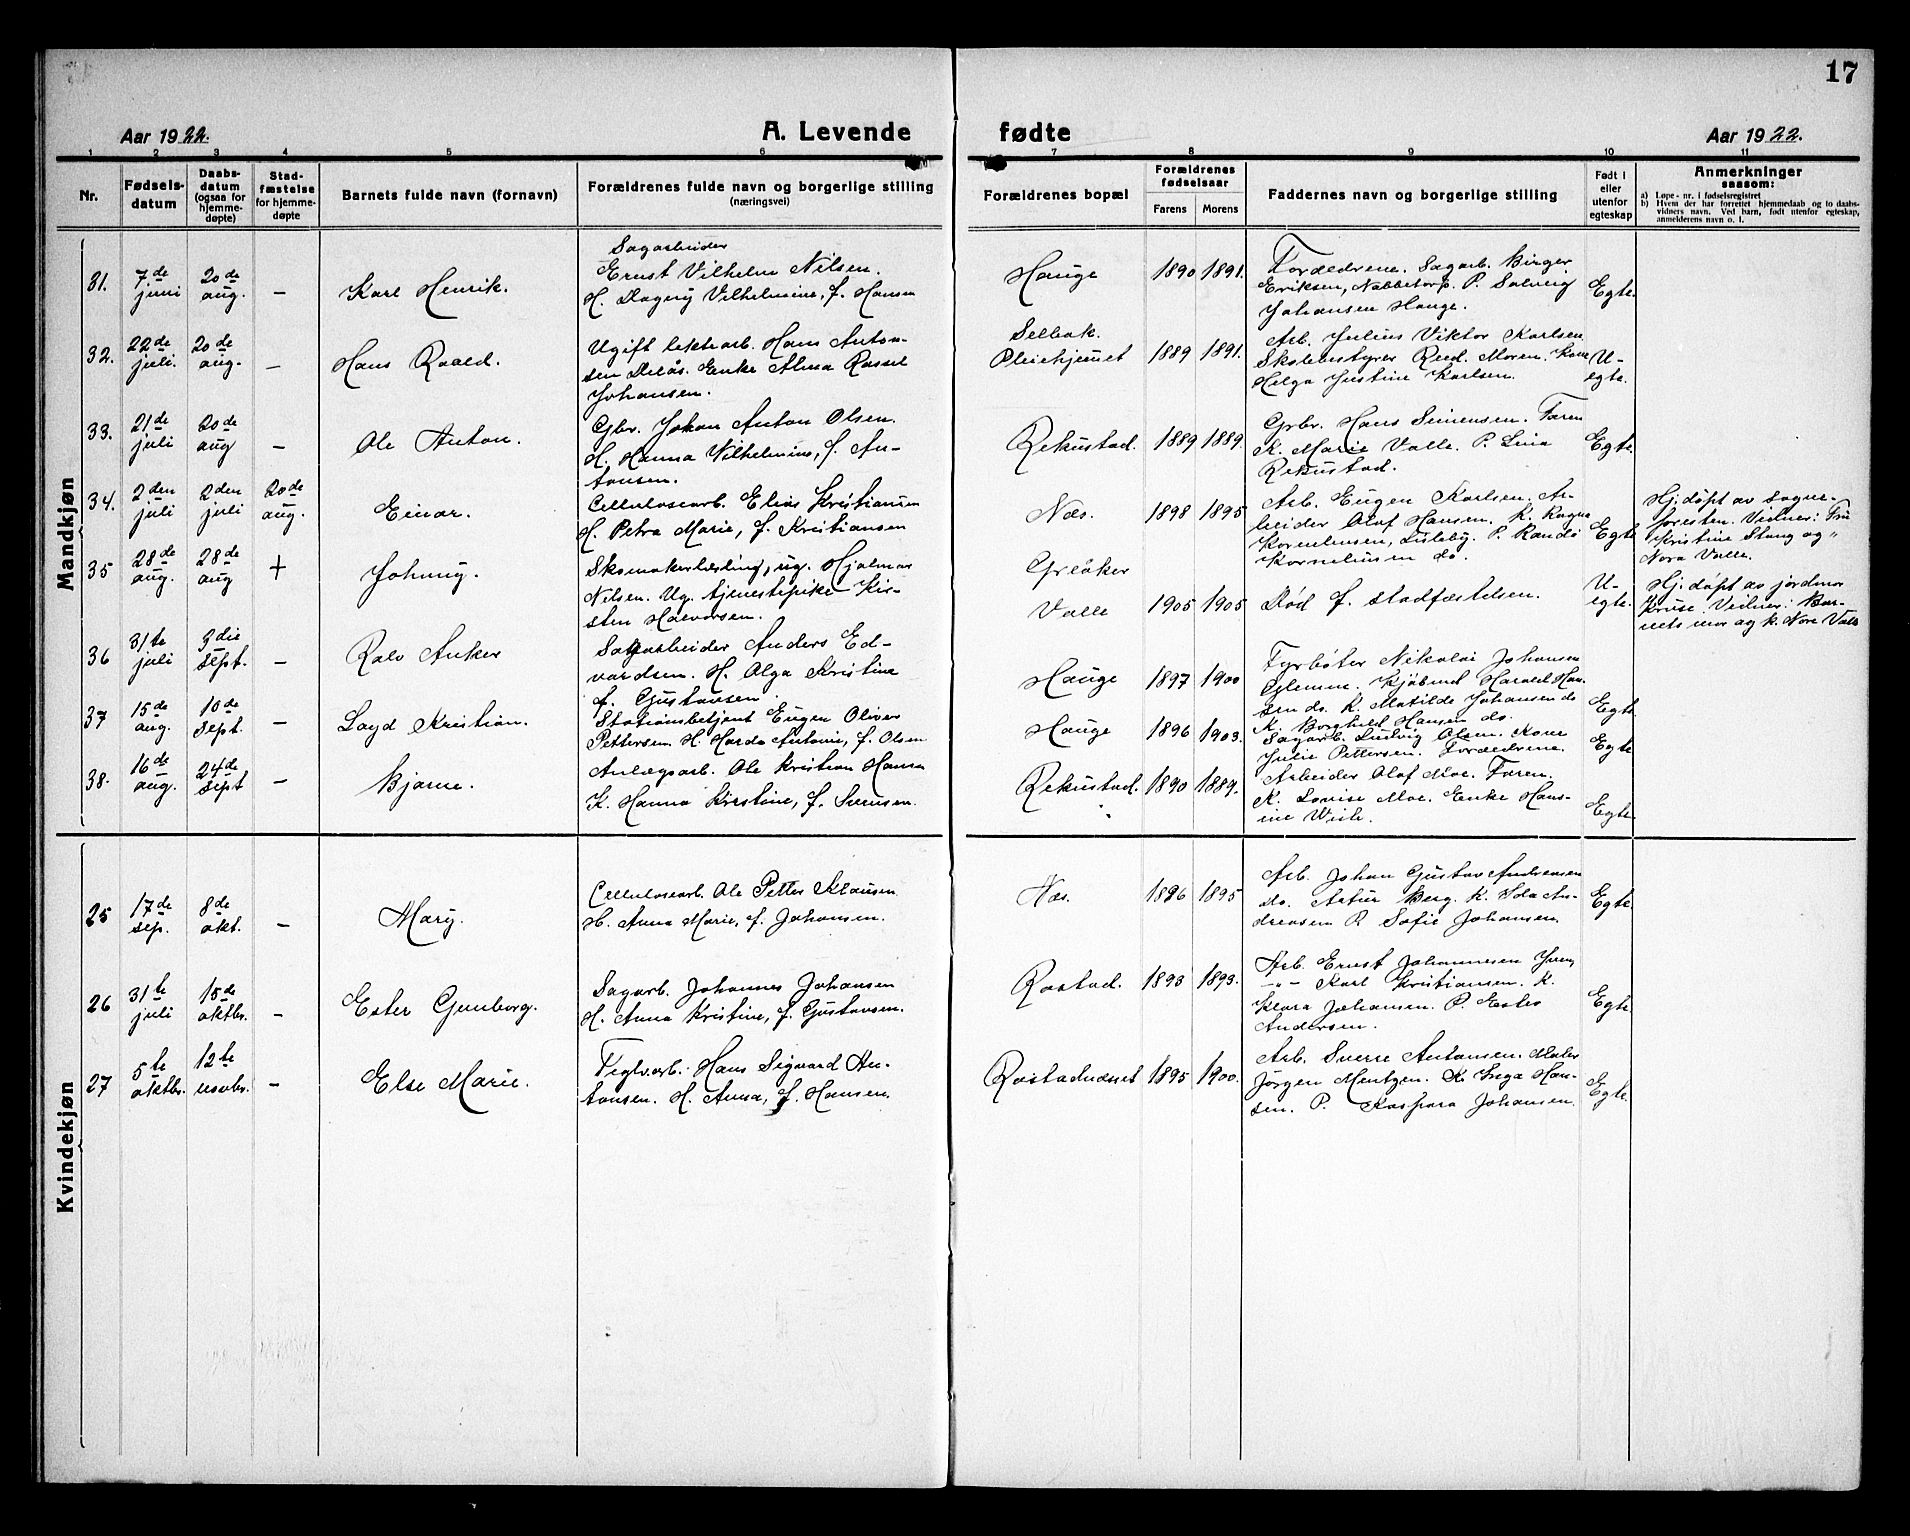 17
Aar 1922.
A. Levende fødte
Aar 1922.
1 2 3 4 5 6 7 8 9 10 11
Nr.
Fødsels-
datum
Daabs-
datum
(ogsaa for
hjemme-
døpte)
Stad-
fæstelse
for hjemme-
døpte
Barnets fulde navn (fornavn)
Forældrenes fulde navn og borgerlige stilling
(næringsvei)
Forældrenes bopæl
Forældrenes
fødselsaar
Farens
Morens
Faddernes navn og borgerlige stilling
Født i
eller
utenfor
egteskap
Anmerkninger
saasom:
a) Løpe-nr. i fødselsregistret
b) Hvem der har forrettet hjemmedaab og to daabs-
vidners navn. Ved barn, født utenfor egteskap,
anmelderens navn o. l.
Mandkjøn
31.
7de
juni
20de
aug.
–
Karl Henrik.
Sagarbeider
Ernst Vilhelm Nilsen.
H. Dagny Vilhelmine, f. Hansen
Hauge
1890
1891.
Forældrene. Sagarb. Birger
Eriksen, Nabbetorp. P. Solveig
Johansen Hauge.
Egte.
32.
22de
juli.
20de
aug.
–
Hans Roald.
Ugift lektrarb. Hans Anton-
sen Delås. Enke Alma Rassel
Johansen.
Selbak.
Pleiehjemet
1889
1891.
Arb. Julius Viktor Karlsen
Skolenstyrer Rud. Moren. Kone
Helga Justine Karlsen.
U-
egte.
33.
21de
juli
20de
aug
–
Ole Anton.
Gbr. Johan Anton Olsen.
H. Hanna Vilhelmine, f. An-
tonsen.
Rekustad.
1889
1889.
Grbr. Hans Simensen. Faren
K. Marie Valle. P. Lina
Rekustad.
Egte.
34.
2den
juli
2den
juli
20de
aug.
Einar.
Cellulosearb. Elias Kristiansen
H. Petra Marie, f. Kristiansen
Næs.
1898
1895
Arb. Eugen Karlsen. Ar-
beider Olaf Hansen. K. Ragna
Korneliusen, Lisleby. P. Randi
Korneliusen do.
Egte
Hj. døpt av sogne-
presten. Vidner: Fru
Kristine Stang og
Nora Valle.
35
28de
aug.
28de
aug
+
Johnny.
Skomakerlærling, ug. Hjalmar
Nilsen. Ug. tjenestepike Kir-
sten Halvorsen.
Greåker
Valle
1905
1905
Død f. stadfæstelsen.
U-
egte.
Hj. døpt av jordmor
Kruse. Vidner: Bar-
nets mor og k. Nora Valle
36
31te
juli
3die
sept.
–
Ralv Anker
Sagarbeider Anders Ed-
vardsen. H. Olga Kristine
f. Gustavsen.
Hauge
1897
1900
Fyrbøter Nikolai Johansen
Glemme. Kjøbmd Harald Han-
sen do. K. Matilde Johansen do
K. Borghild Hansen do.
Egte.
37
15de
aug.
10de
sept.
–
Layd Kristian.
Stationsbetjent Eugen Oliver
Pettersen. H. Harda Antonie, f. Olsen
Hauge
1896
1903.
Sagarb. Ludvig Olsen. Kone
Julie Pettersen. Forældrene.
Egte
38.
16de
aug.
24de
sept
–
Bjarne.
Anlægsarb. Ole Kristian Hansen
K. Hanna Kristine, f. Svensen.
Rekustad.
1890
1889.
Arbeider Olaf Moe. Faren.
K. Lovise Moe. Enke Hans-
ine
Egte.
Kvindekjøn
25
17de
sep.
8de
okt.
–
Mary.
Cellulosearb. Ole Petter Klausen
H. Anna Marie, f. Johansen.
Næs.
1896
1895
Arb. Johan Gustav Andreasen
do. Artur Berg. K. Ida An-
dreasen P. Sofie Johansen.
Egte.
26
31te
juli
15de
oktbr.
–
Ester Gunborg.
Sagarb. Johannes Johansen
H. Anna Kristine, f. Gustavsen.
Rostad.
1893
1893.
Arb. Ernst Johannesen
-„- Karl Kristiansen. K.
Klara Johansen. P. Ester
Andersen.
Egte.
27
5te
oktbr.
12te
novbr.
–
Else Marie.
Teglvarb. Hans Sigvard An-
tonsen. H. Anna, f. Hansen.
Rostadneset
1895
1900.
Arb. Sverre Antonsen. Maler
Jörgen Mentzen. K. Inga Han-
sen. P. Kaspara Johansen.
Egte.